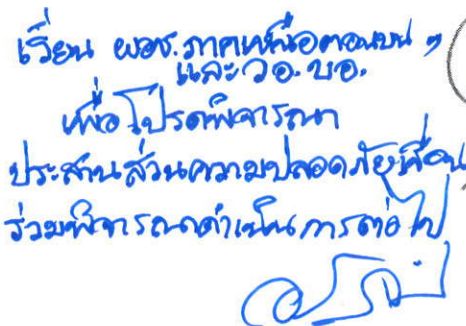 เรียน ผอชช.ภาคเหนือตอนบน ๆ
และ วอ. บอ.
เพื่อโปรดพิจารณา
ประสานส่วนความปลอดภัยเขื่อน
ร่วมพิจารณาดำเนินการต่อไป